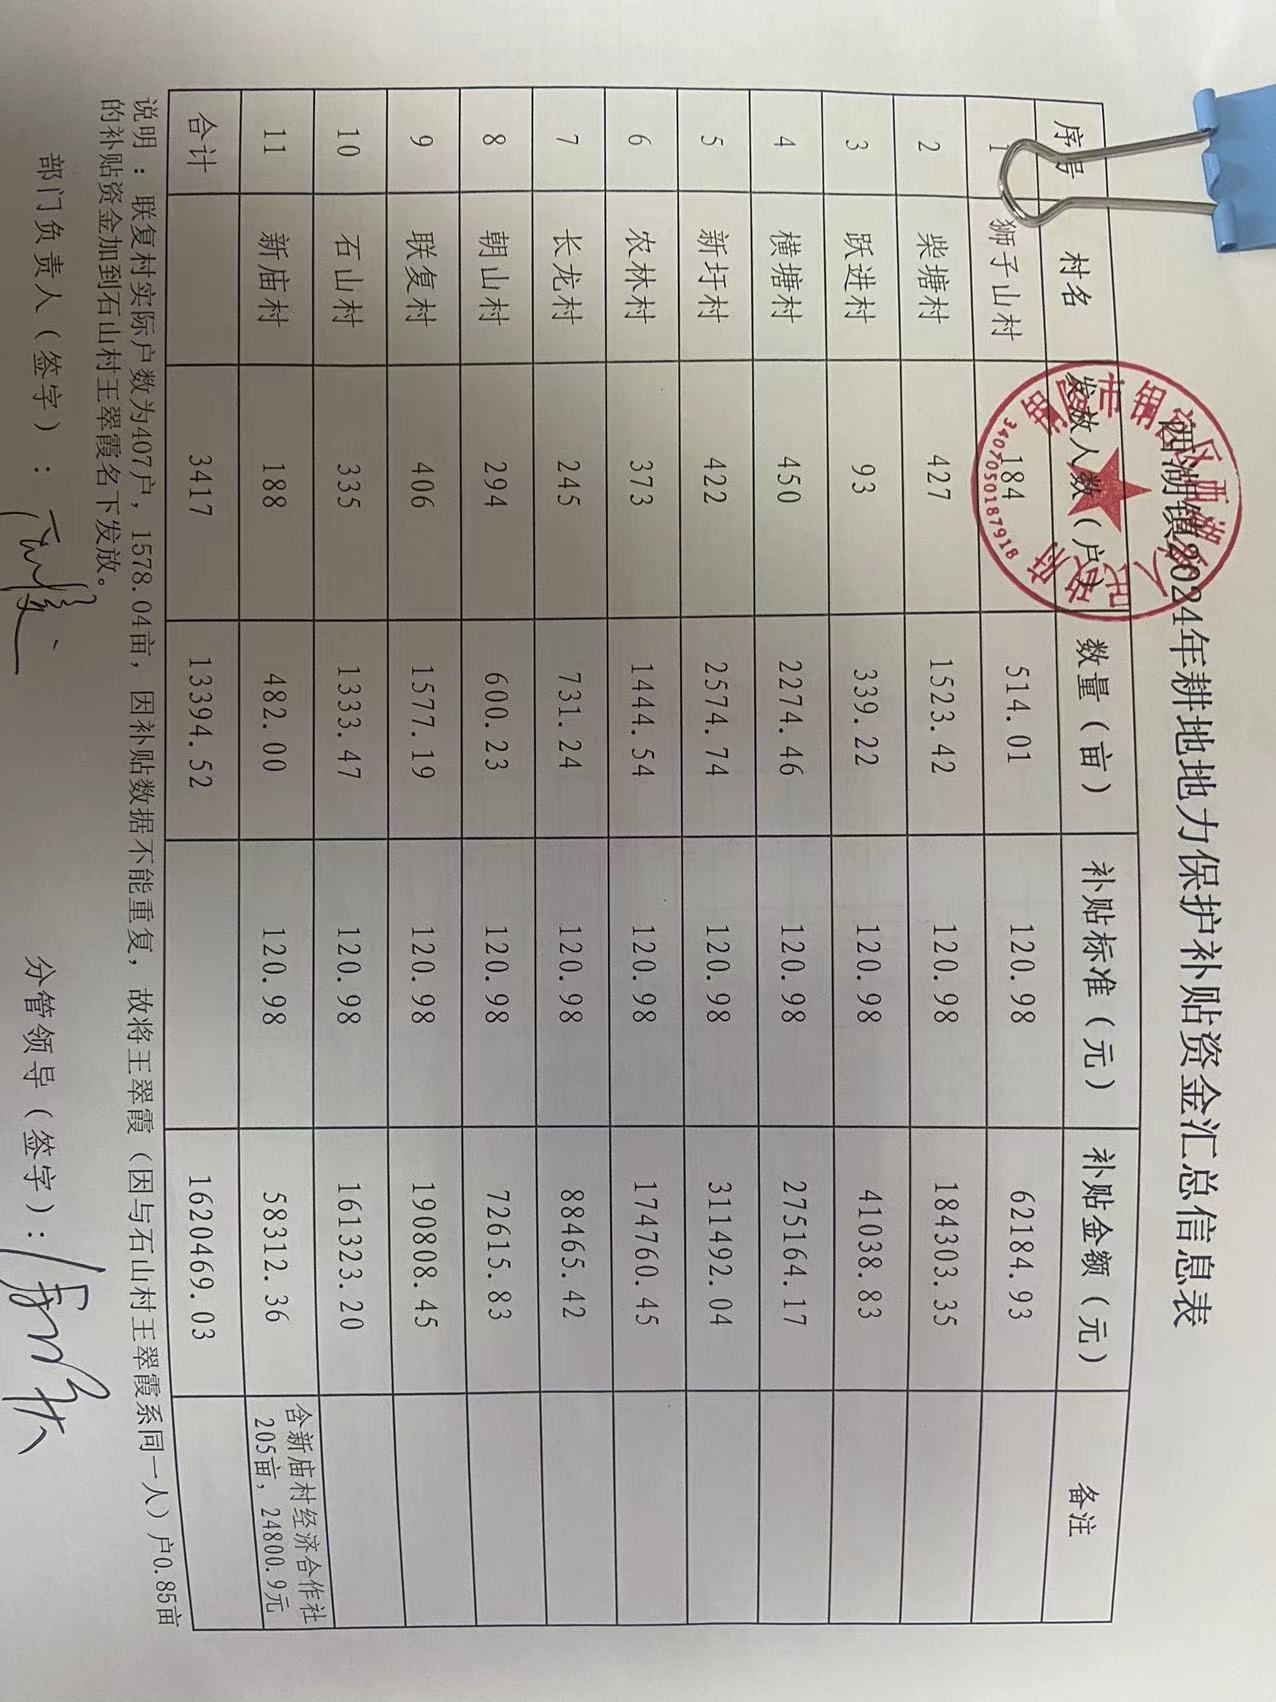 西湖镇2024年耕地地力保护补贴资金汇总信息表
序号 村名 发放人数（户） 数量（亩） 补贴标准（元） 补贴金额（元） 备注
1 狮子山村 184 514.01 120.98 62184.93
2 柴塘村 427 1523.42 120.98 184303.35
3 跃进村 93 339.22 120.98 41038.83
4 横塘村 450 2274.46 120.98 275164.17
5 新圩村 422 2574.74 120.98 311492.04
6 农林村 373 1444.54 120.98 174760.45
7 长龙村 245 731.24 120.98 88465.42
8 朝山村 294 600.23 120.98 72615.83
9 联复村 406 1577.19 120.98 190808.45
10 石山村 335 1333.47 120.98 161323.20
11 新庙村 188 482.00 120.98 58312.36 含新庙村经济合作社
205亩，24800.9元
合计 3417 13394.52 1620469.03
说明：联复村实际户数为407户，1578.04亩，因补贴数据不能重复，故将王翠霞（因与石山村王翠霞系同一人）户0.85亩
的补贴资金加到石山村王翠霞名下发放。
部门负责人（签字）：
分管领导（签字）：
3407050187918